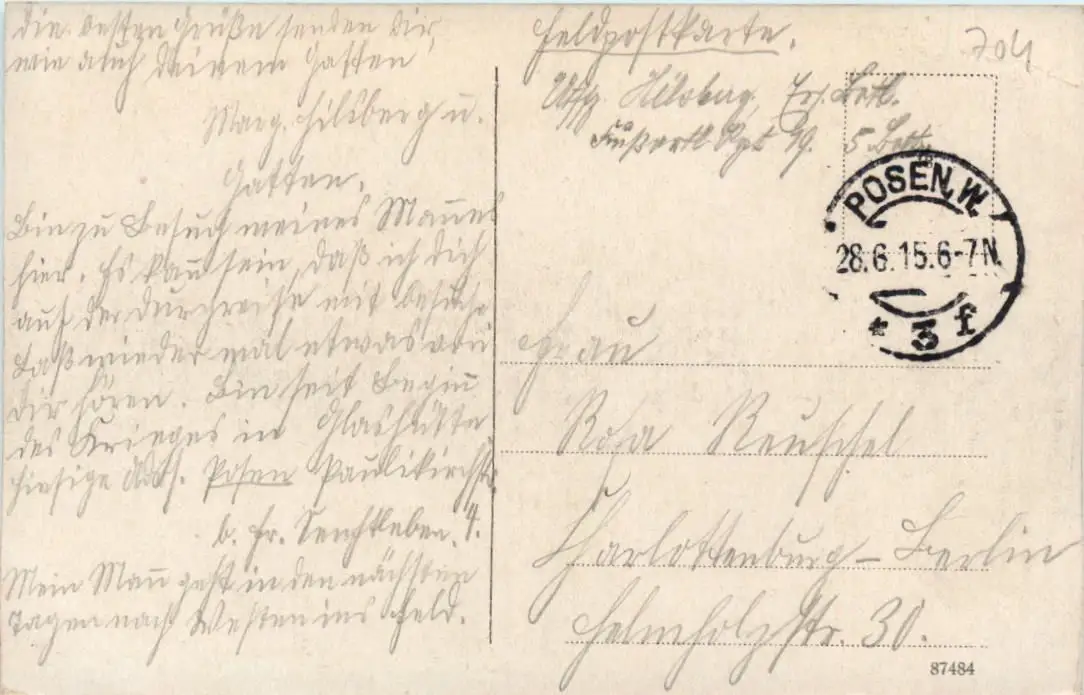 die besten Grüße senden Dir,
wie auch Deinem Gatten
Marg. Hilsberg u.
Gatten.
Bin zu Besuch meines Mannes
hier. Es kann sein, daß ich dich
auf der Durchreise mit besuche.
Laß wieder mal etwas von
dir hören. Bin seit Beginn
des Krieges in Glashütte
hiesige Adr. Posen Paulikirchstr.
b. Fr. Senftleben. 4.
Mein Mann geht in den nächsten
Tagen nach Westen ins Feld.
Feldpostkarte.
704
Uffz. Hilsberg, Ers. Batl.
Fußartl Rgt 5. Battr.
POSEN.W.
28.6.15.6-7N.
* 3 f
Frau
Rosa Reuschel
Charlottenburg - Berlin
Helmholzstr. 30.
87484